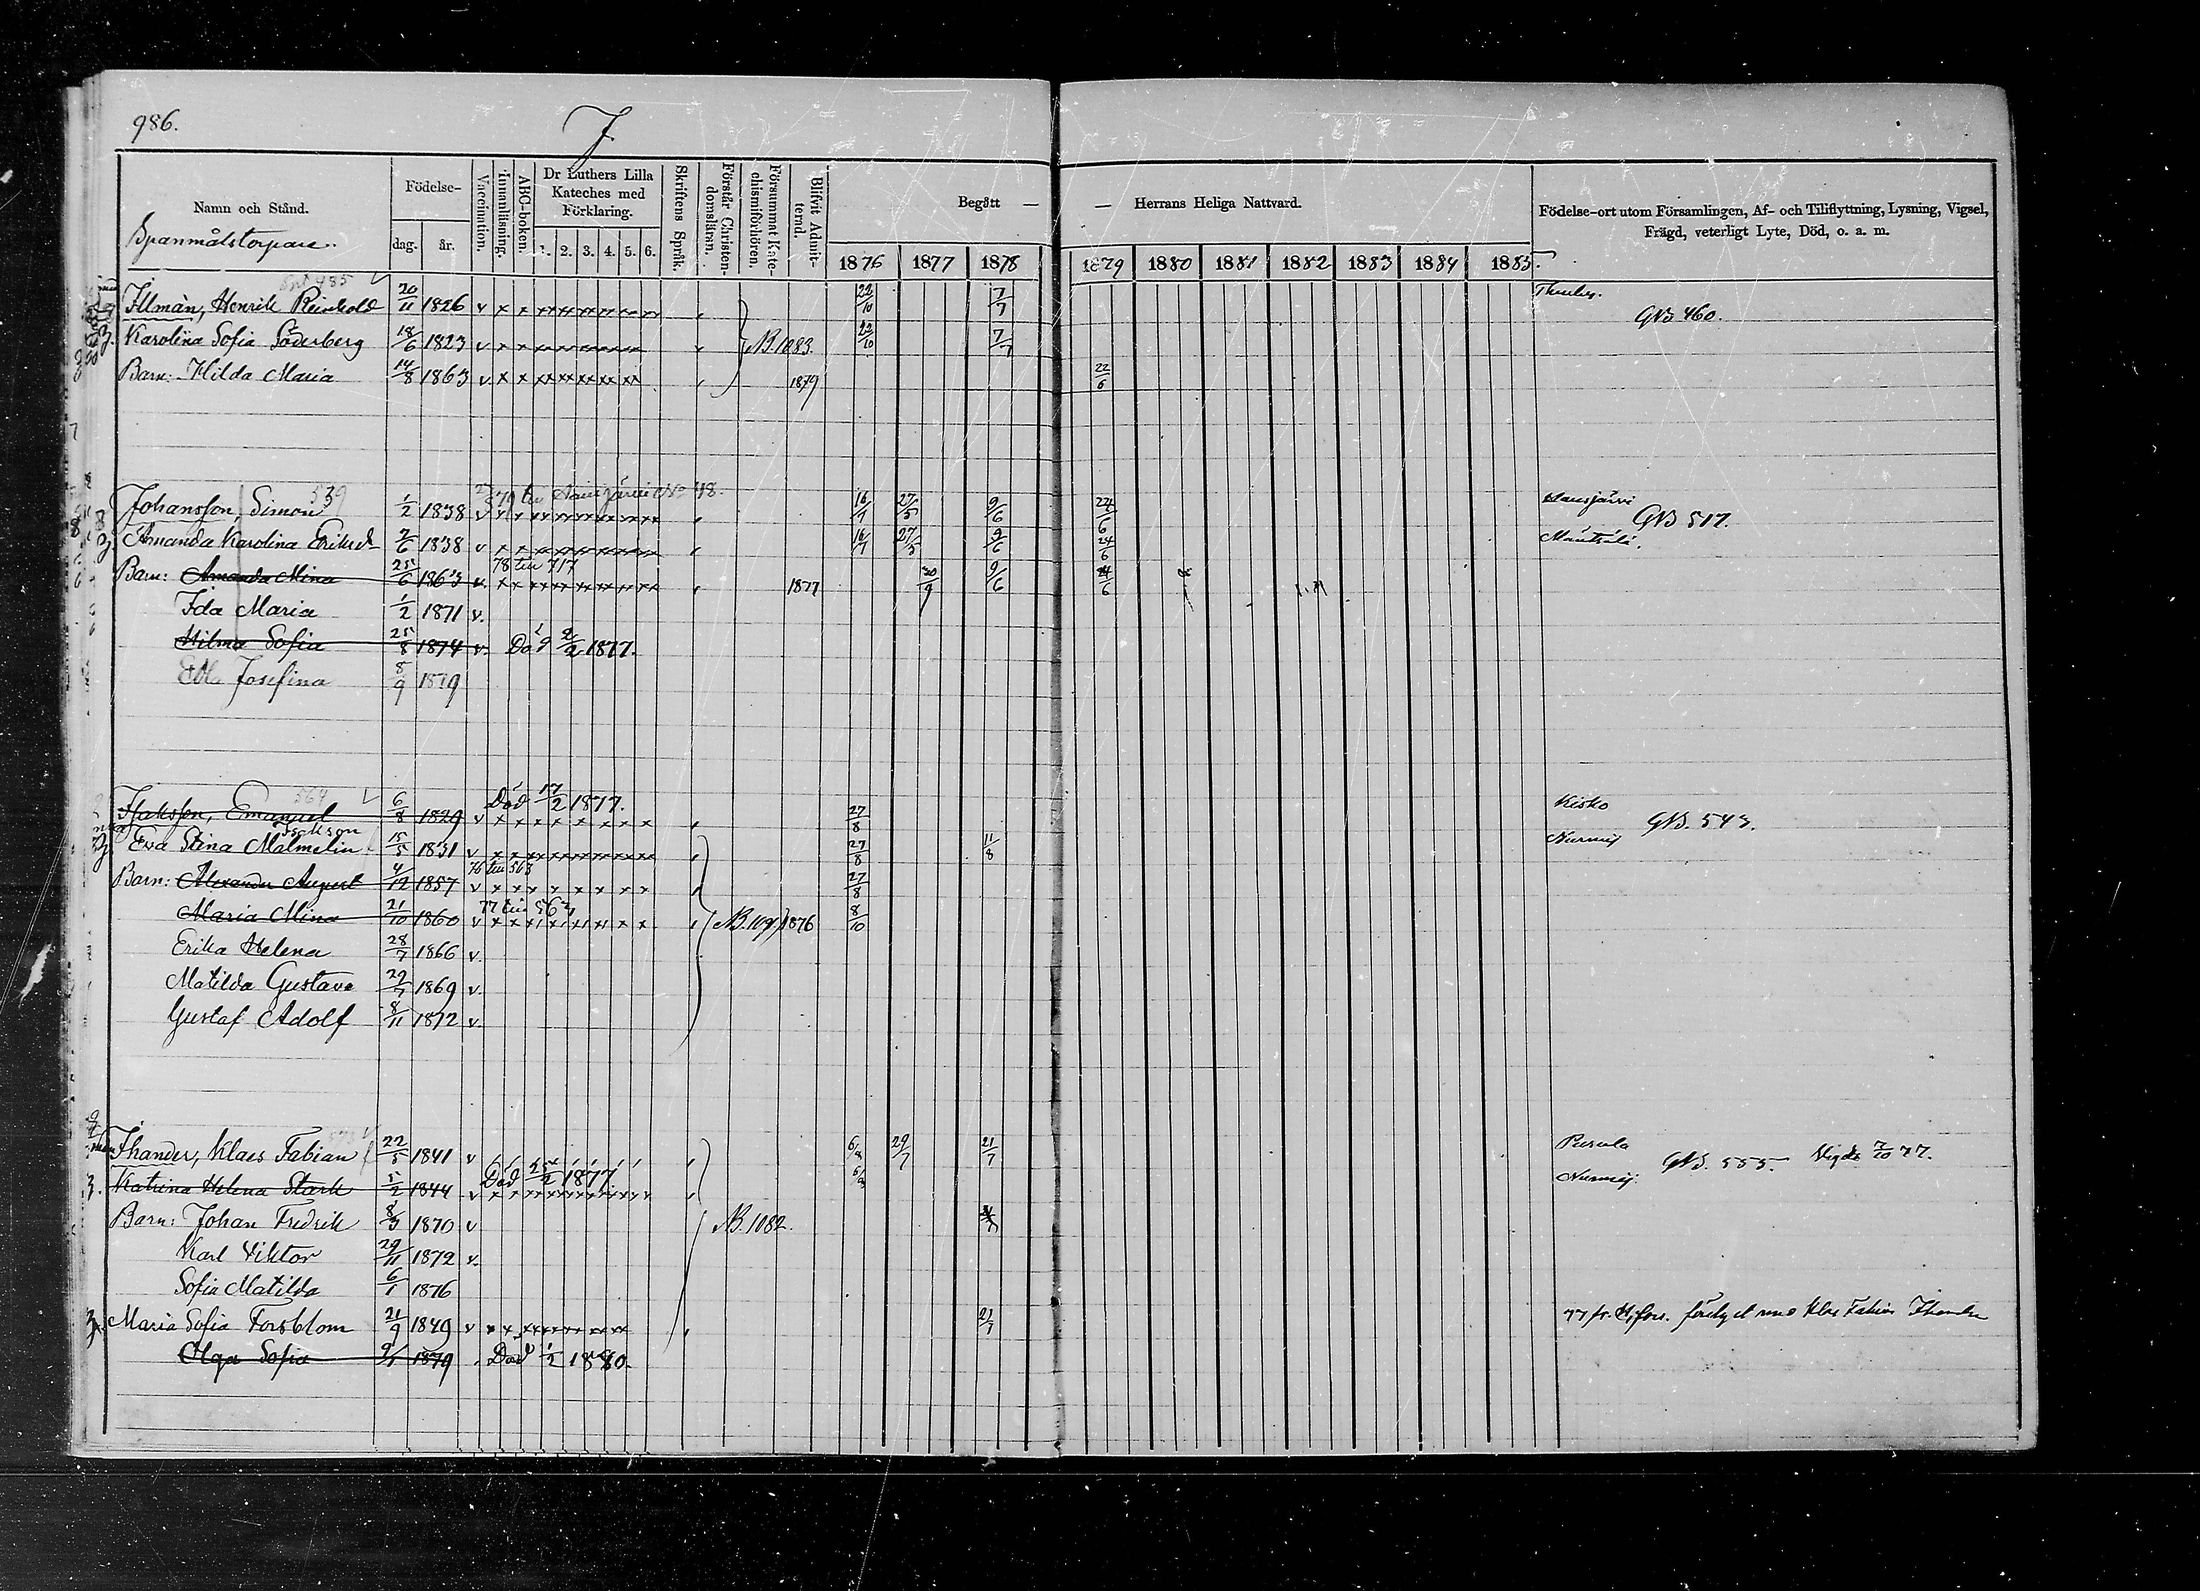 986.
J.
Namn och Stånd.
Födelse-
dag. år.
Vaccination.
Innanläsning.
ABC-boken.
Dr Luthers Lilla Kateches med Förklaring.
1. 2. 3. 4. 5. 6.
Skriftens Språk.
Förstår Christendomsläran.
Försummat Katechismiförhören.
Blifvit Admitterad.
Begått — — Herrans Heliga Nattvard.
1876 1877 1878 1879 1880 1881 1882 1883 1884 1885.
Födelse-ort utom Församlingen, Af- och Tillflyttning, Lysning, Vigsel,
Frägd, veterligt Lyte, Död, o. a. m.
Spanmålstorpare.
485
Illmàn, Henrik Reinhold 20/11 1826 v 22/10 7/7 GNB 460.
Karolina Sofia Söderberg 18/6 1823 v NB. 1083. 22/10 7/7
Barn: Hilda Maria 14/8 1863 v 1879 22/6
539
Johansson, Simon 1/2 1838 v 16/7 27/5 9/6 24/6 Hausjärvi GNB 517.
Amanda Karolina Eriksd. 2/6 1838 v 16/7 27/5 9/6 24/6 Mäntsälä.
78 till 717
Barn: Amanda Mina 25/6 1863 v. 1877 30/9 9/6 24/6
Ida Maria 1/2 1871 v.
Hilma Sofia 25/8 1874 v. Död 2/2 1877.
Josefina 8/9 1879
564
Isaksson, Emanuel 6/8 1829 v Död 17/2 1877. 27/8 Kisko GNB. 543.
Isakson
Eva Stina Malmelin 15/5 1831 v 27/8 11/8 Nurmij
76 till 563
Barn: Alexander August 4/12 1857 v 27/8
Maria Mina 21/10 1860 v 1876 8/10
Erika Helena 28/7 1866 v.
Matilda Gustava 29/7 1869 v.
Gustaf Adolf 8/11 1872 v.
Ihander, Klaes Fabian 22/5 1841 v 29/7 21/7 Pusula GNB. 555. Vigde 7/10 77.
Katrina Helena Stark 5/2 1844 v Död 25/2 1877. Nurmij.
Barn: Johan Fredrik 8/3 1870 v NB. 1082.
Karl Viktor 29/11 1872 v.
Sofia Matilda 6/1 1876
Maria Sofia Forsblom 21/9 1849 v 21/7 77 fr. H:fors.
Olga Sofia 1879 Död 1/2 1880.